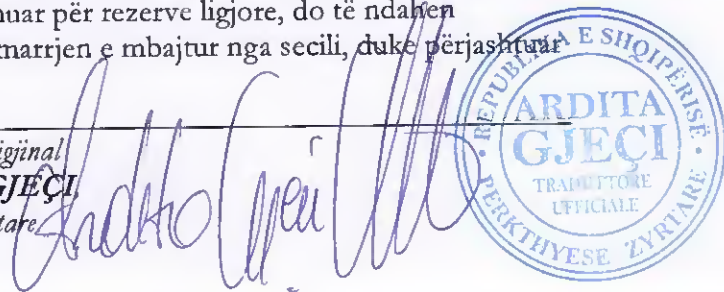 uar për rezerve ligjore, do të ndahen
marrjen e mbajtur nga secili, duke përjashtuar
igjinal
GJEÇI,
tare
Ardita Gjeçi
REPUBLIKA E SHQIPËRISË
ARDITA
GJEÇI
TRADUTTORE
UFFICIALE
PËRKTHYESE ZYRTARE